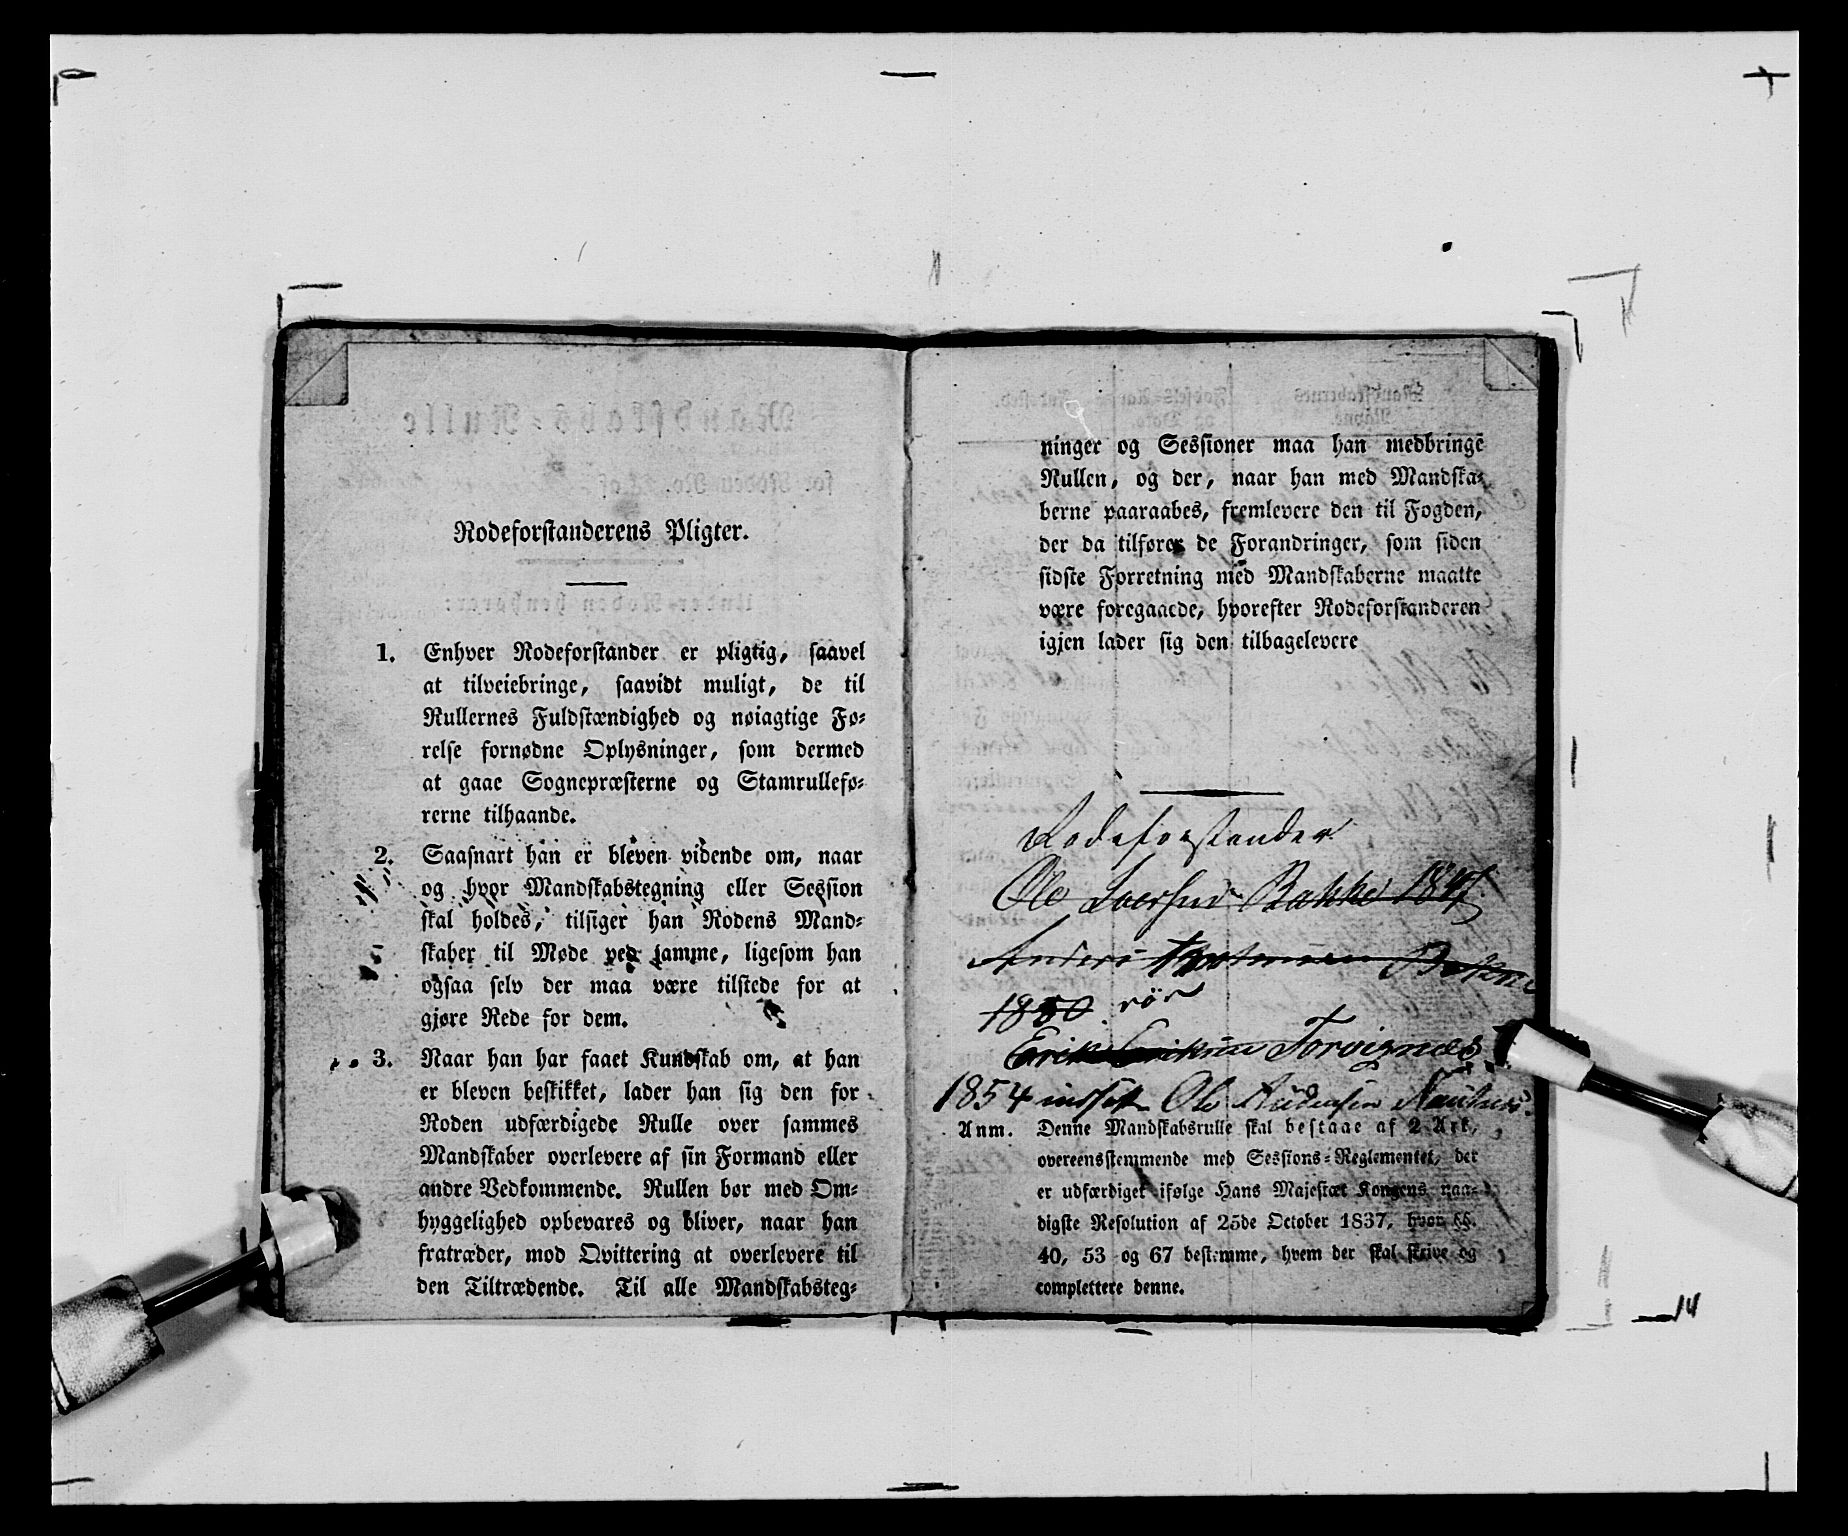 Rodeforstanderens Pligter.
1. Enhver Rodeforstander er pligtig, saavel
at tilveiebringe, saavidt muligt, de til
Rullernes Fuldstændighed og nøiagtige Fø-
relse fornødne Oplysninger, som dermed
at gaae Sognepræsterne og Stamrullefø-
rerne tilhaande.
2. Saasnart han er bleven vidende om, naar
og hvor Mandskabstegning eller Session
skal holdes, tilsiger han Rodens Mand-
skaber til Møde ved samme, ligesom han
ogsaa selv der maa være tilstede for at
gjøre Rede for dem.
3. Naar han har faaet Kundskab om, at han
er bleven beskikket, lader han sig den for
Roden udfærdigede Rulle over sammes
Mandskaber overlevere af sin Formand eller
andre Vedkommende. Rullen bør med Om-
hyggelighed opbevares og bliver, naar han
fratræder, mod Qvittering at overlevere til
den Tiltrædende. Til alle Mandskabsteg-
ninger og Sessioner maa han medbringe
Rullen, og der, naar han med Mandska-
berne paaraabes, fremlevere den til Fogden,
der da tilfører de Forandringer, som siden
sidste Forretning med Mandskaberne maatte
være foregaaede, hvorefter Rodeforstanderen
igjen lader sig den tilbagelevere
Rodeforstander
Ole Bakke 1847
Anders
1850
Erik Eriksen Torvignæs
1854 indsat Ole
Anm. Denne Mandskabsrulle skal bestaae af 2 Ark,
overeensstemmende med Sessions-Reglementet, der
er udfærdiget ifølge Hans Majestæt Kongens naa-
digste Resolution af 25de October 1837, hvor §§.
40, 53 og 67 bestemme, hvem der skal skrive og
complettere denne.
14